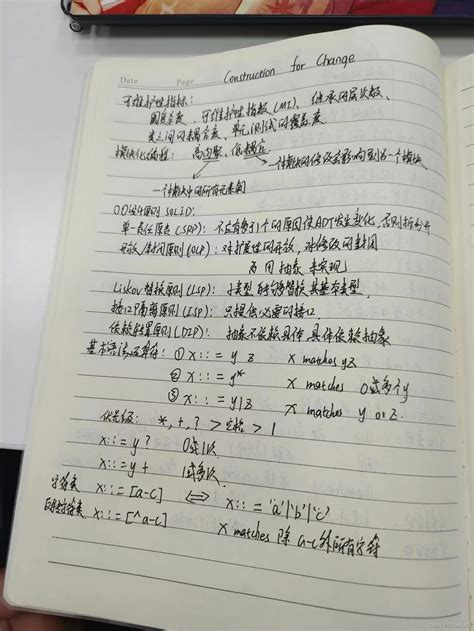 Date Page Construction for Change
可维护性指标:
圈复杂度、可维护性指数(MI)、继承的层次数、
类之间的耦合度、单元测试的覆盖度
模块化编程: 高内聚、低耦合
一个模块的修改会影响到另一个模块
一个模块中的所有元素
OO设计原则 SOLID:
单一责任原则(SRP): 不应有多于1个的原因使ADT发生变化,否则拆分开
开放/封闭原则(OCP): 对扩展性的开放,对修改的封闭
用抽象来实现
Liskov替换原则(LSP): 子类型能够替换其基本类型
接口隔离原则(ISP): 只提供必需的接口
依赖转置原则(DIP): 抽象不依赖具体,具体依赖抽象
基本语法运算符: ① x::= y z x matches yz
② x::= y* x matches 0或多个y
③ x::= y|z x matches y or z.
优先级: *,+,? > 连接 > |
x::=y? 0或1次
x::=y+ 1或多次
字符类 x::=[a-c] ⇔ x::='a'|'b'|'c'
x::=[^a-c]
x matches 除 a-c 外所有字符